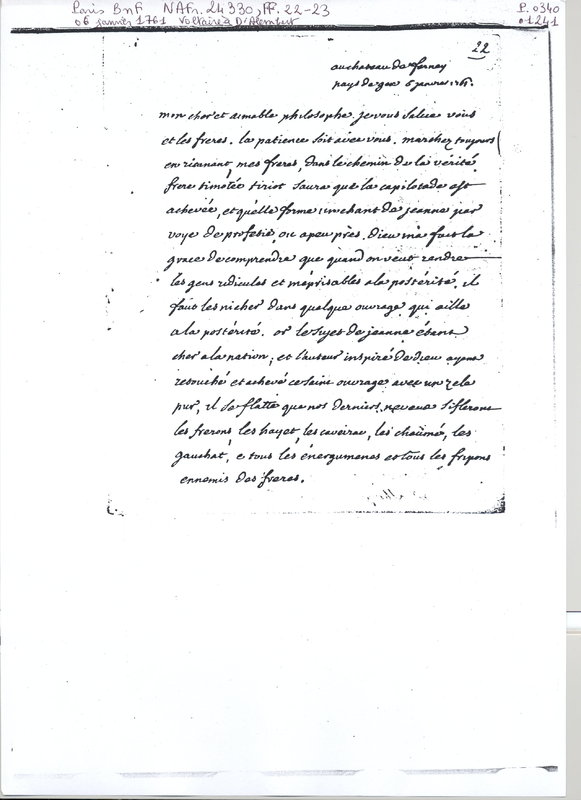 Paris BnF NAFr. 24330, FF. 22-23
P. 0340
06 janvier 1761 Voltaire à D'Alembert
01241
22
au chateau de ferney
pays de gex 6 janvier 1761.
mon cher et aimable philosophe je vous salue vous
et les freres. la patience soit avec vous. marchez toujours
en ricanant, mes freres, dans le chemin de la vérité.
frere timotée tiriot saura que la capilotade est
achevée, et quélle forme un chant de jeanne par
voye de profetie, ou apeu près. Dieu m'a fait la
grace de comprendre que quand on veut rendre
les gens ridicules et méprisables a la postérité. il
faut les nicher dans quelque ouvrage qui aille
a la postérité. or le sujet de jeanne étant
cher a la nation, et l'auteur inspiré de Dieu ayant
retouché et achevé ce saint ouvrage avec un zele
pur, il se flatte que nos derniers neveux siflerons
les frerons, les hayet, les caveirac, les chaümé, les
gauchat, e tous les énergumenes et tous les fripons
ennemis des freres.